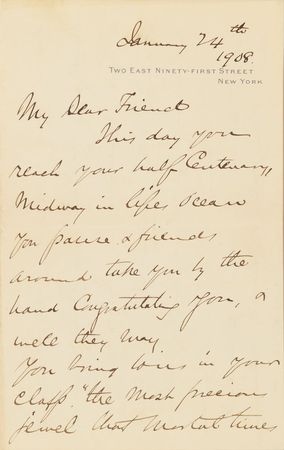 January 24th
1908.
TWO EAST NINETY-FIRST STREET
NEW YORK
My Dear Friend
This day you
reach your half Centenary,
Midway in life's Ocean
you pause & friends
around take you by the
hand Congratulating you, &
well they may
You bring to us in your
class "the most precious
jewel that mortal times